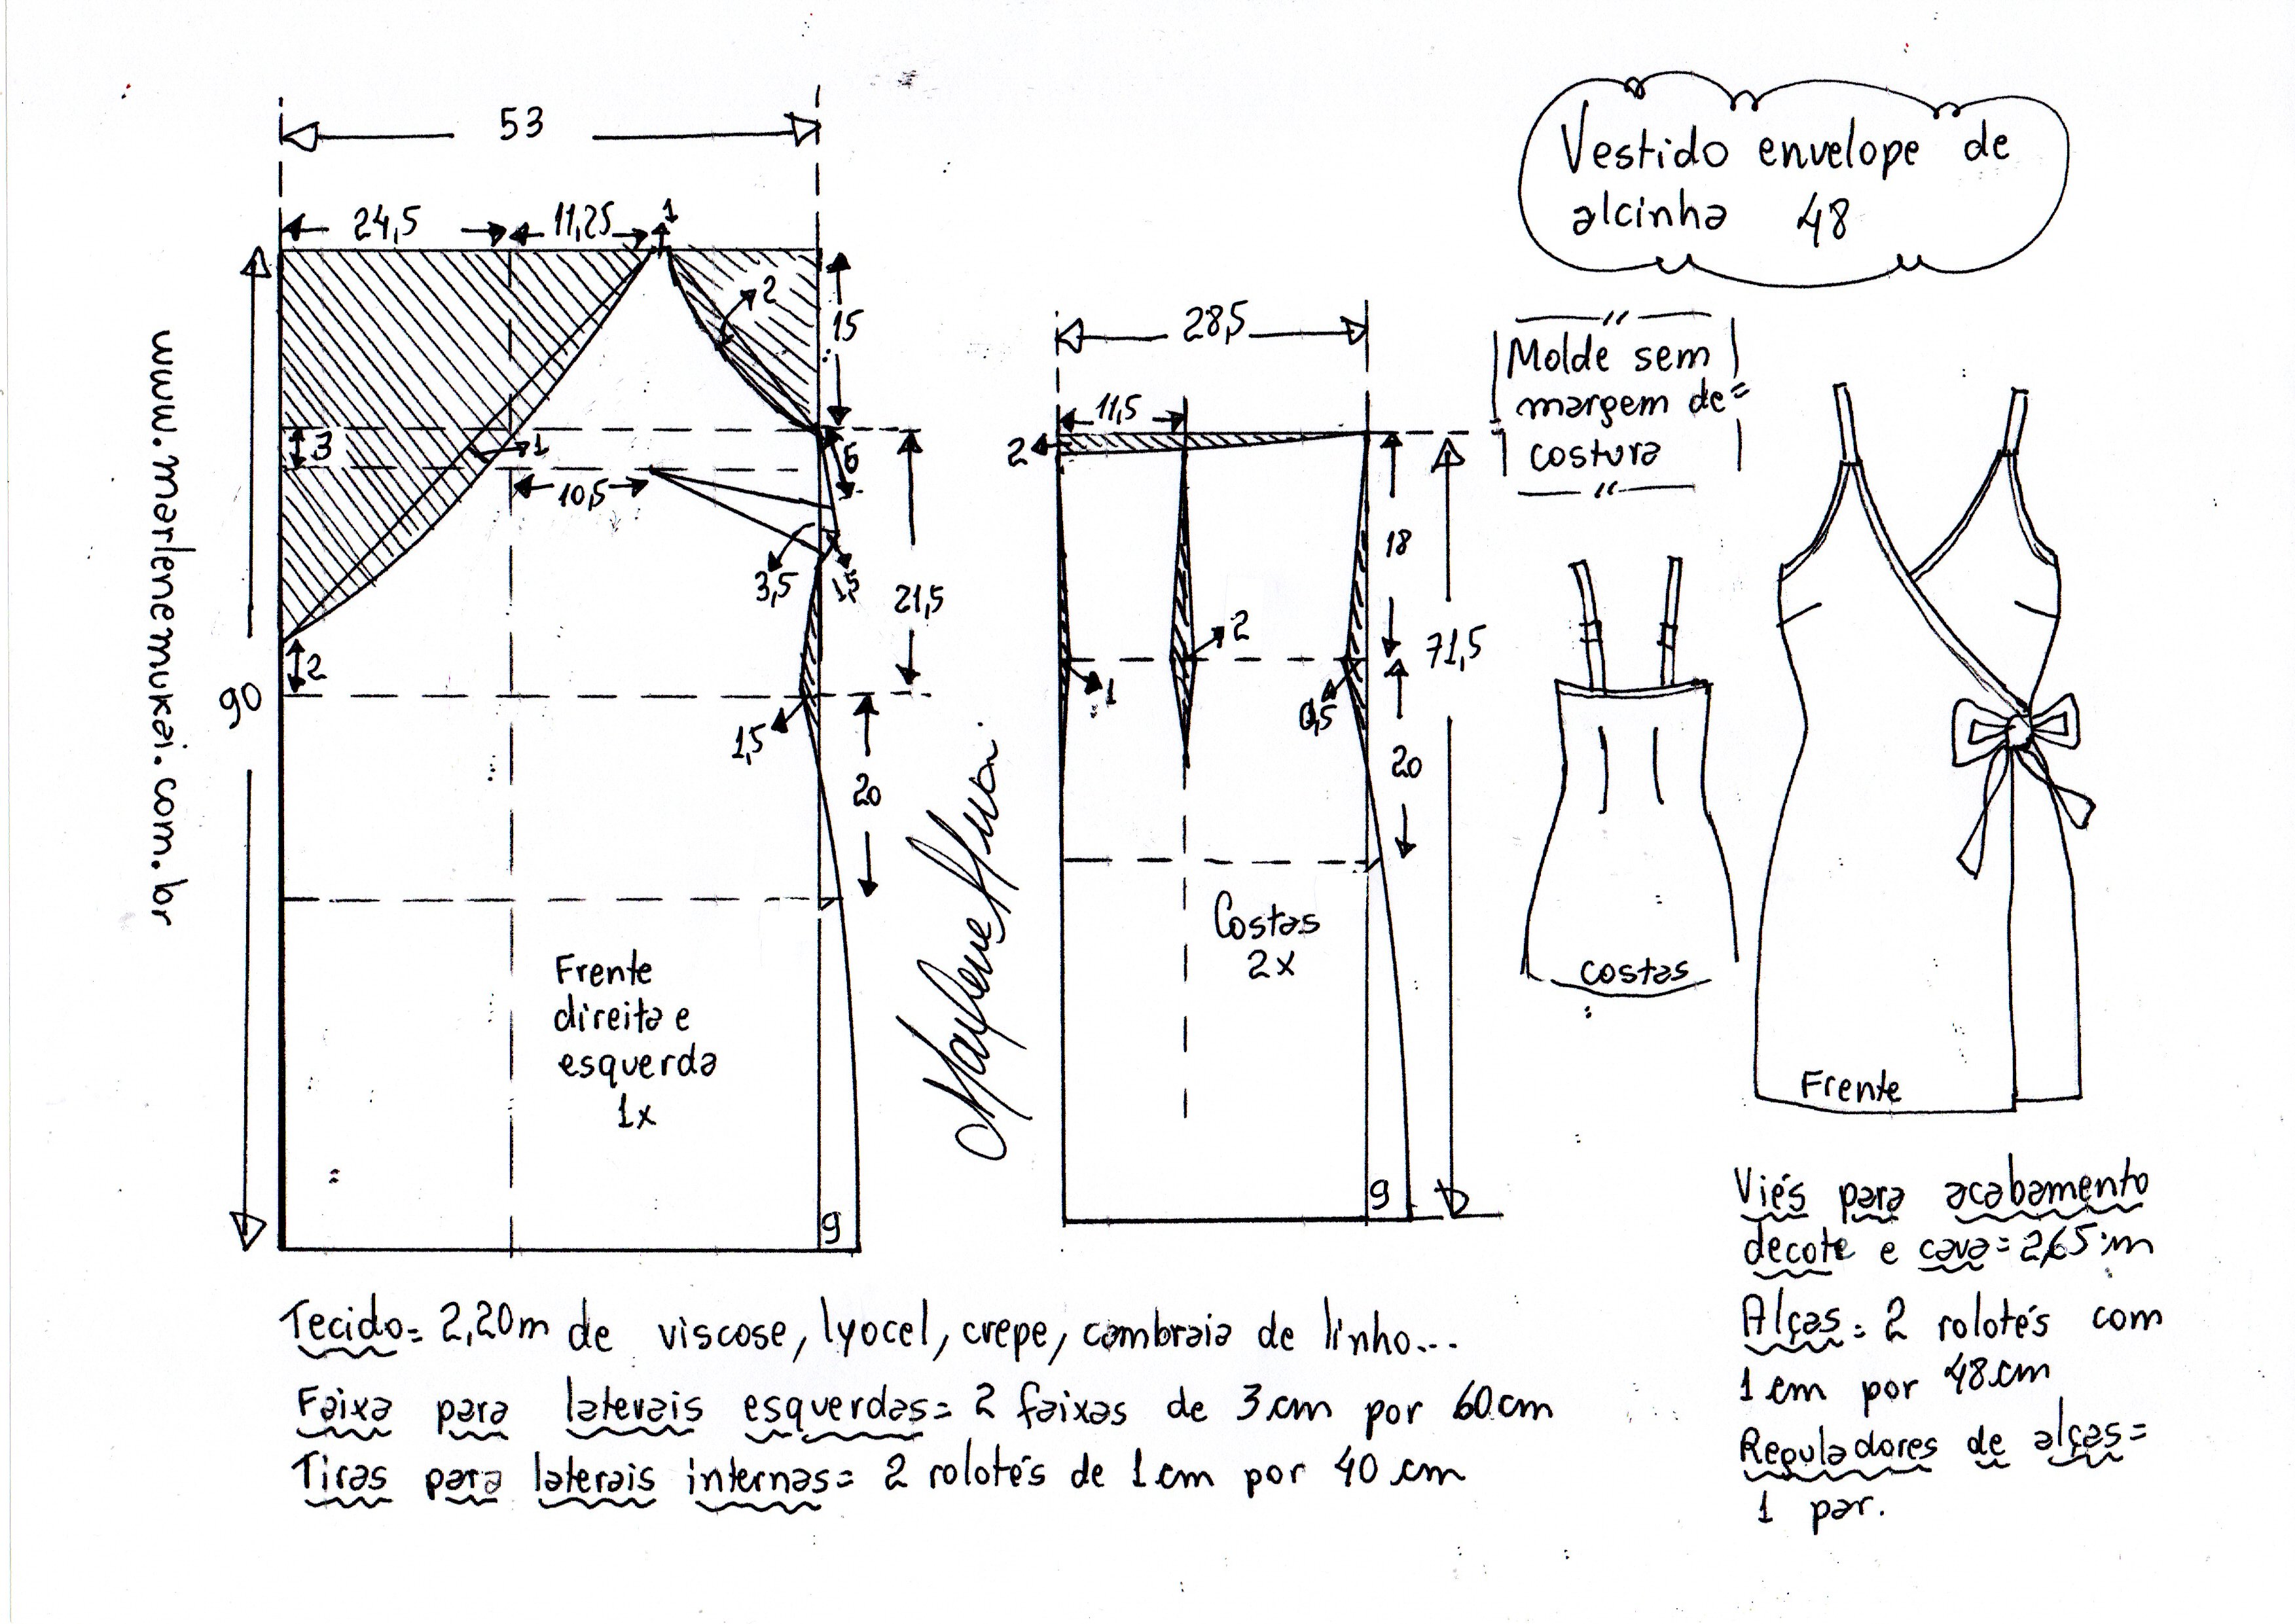 Vestido envelope de
alcinha 48
Molde sem
margem de
costura
www.marlenemukai.com.br
53
24,5
11,25
1
2
15
3
1
10,5
6
3,5
1,5
21,5
2
90
1,5
20
Frente
direita e
esquerda
1x
9
28,5
11,5
2
18
71,5
2
1
0,5
20
Costas
2x
9
costas
Frente
Tecido = 2,20m de viscose, lyocel, crepe, cambraia de linho...
Faixa para laterais esquerdas = 2 faixas de 3 cm por 60 cm
Tiras para laterais internas = 2 rolotés de 1 cm por 40 cm
Viés para acabamento
decote e cava = 2,65 m
Alças = 2 rolotés com
1 cm por 48 cm
Reguladores de alças =
1 par.